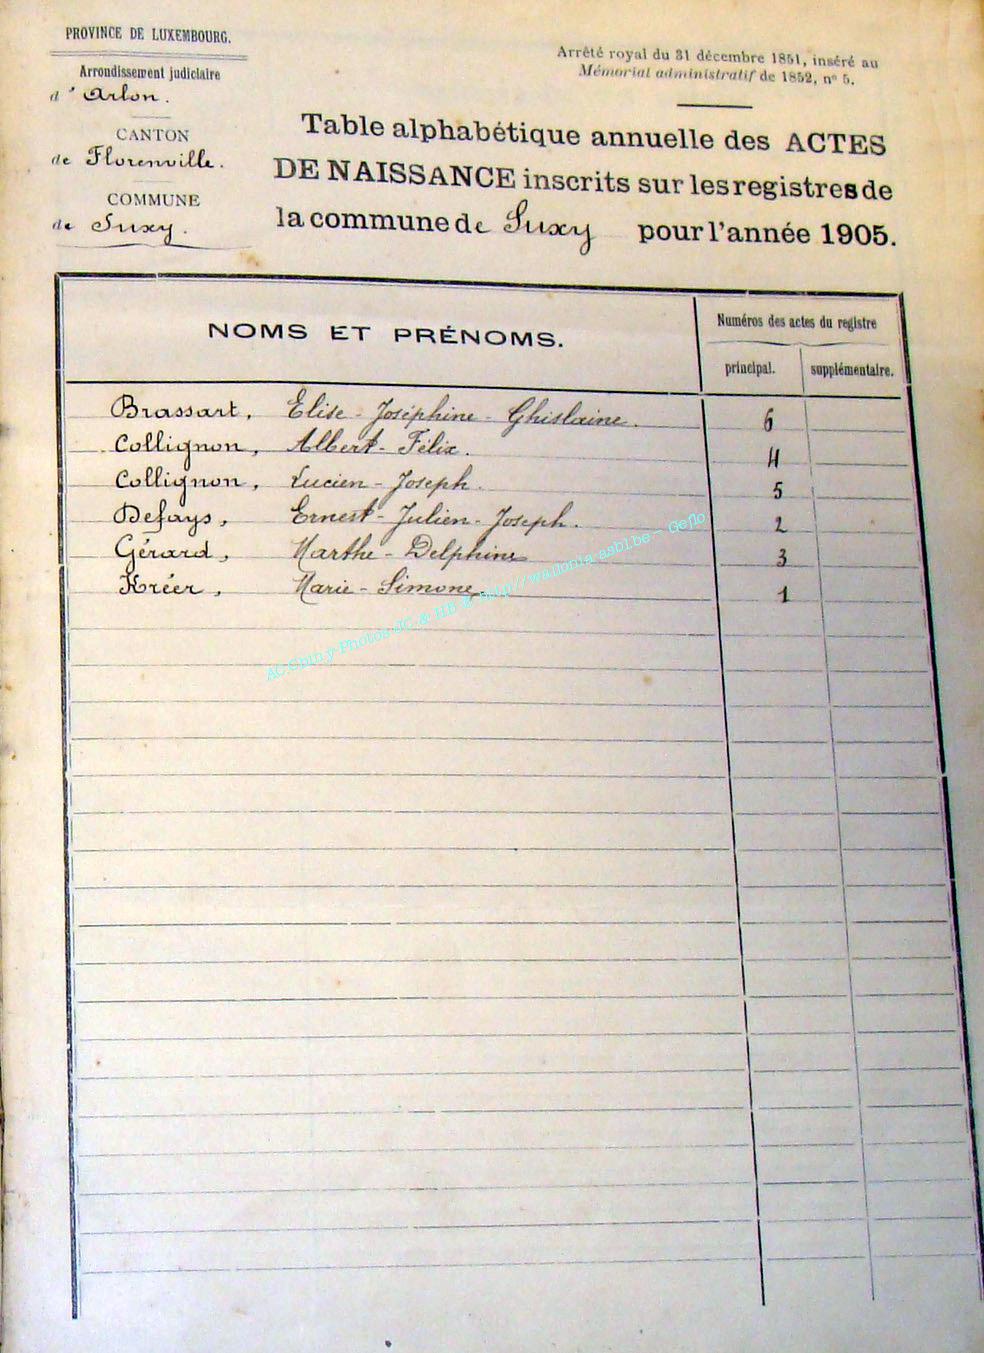 PROVINCE DE LUXEMBOURG.
Arrondissement judiciaire
d'Arlon.
CANTON
de Florenville.
COMMUNE
de Suxy.
Arrêté royal du 31 décembre 1851, inséré au
Mémorial administratif de 1852, n° 5.
Table alphabétique annuelle des ACTES
DE NAISSANCE inscrits sur les registres de
la commune de Suxy pour l'année 1905.
NOMS ET PRÉNOMS.
Numéros des actes du registre
principal. supplémentaire.
Brassart, Elise - Joséphine - Ghislaine. 6
Collignon, Albert - Félix. 4
Collignon, Lucien - Joseph. 5
Defays, Ernest - Julien - Joseph. 2
Gérard, Marthe - Delphine 3
Kréer, Marie - Simone 1
AC.Chiny-Photos JC & HB & http//wallonia-asblbe - Geflo